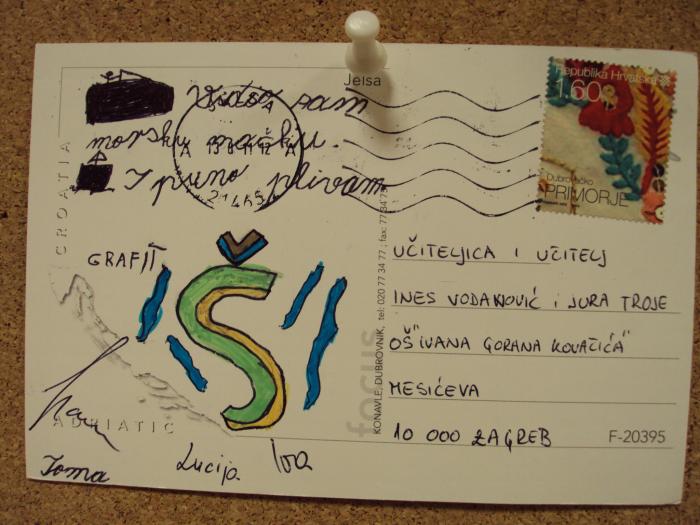 Jelsa
Vidio sam
morsku mačku.
I puno plivam
A 13 8 11 12 A
21465
CROATIA
GRAFIT
Š
ADRIATIC
Toma
Lucija
Iva
Republika Hrvatska
1.60
Dubrovačko
PRIMORJE
KONAVLE, DUBROVNIK, tel: 020 77 34 77 ; fax: 77 34 75
focus
UČITELJICA I UČITELJ
INES VODANOVIĆ i JURA TROJE
OŠ "IVANA GORANA KOVAČIĆA"
MESIĆEVA
10 000 ZAGREB
F-20395